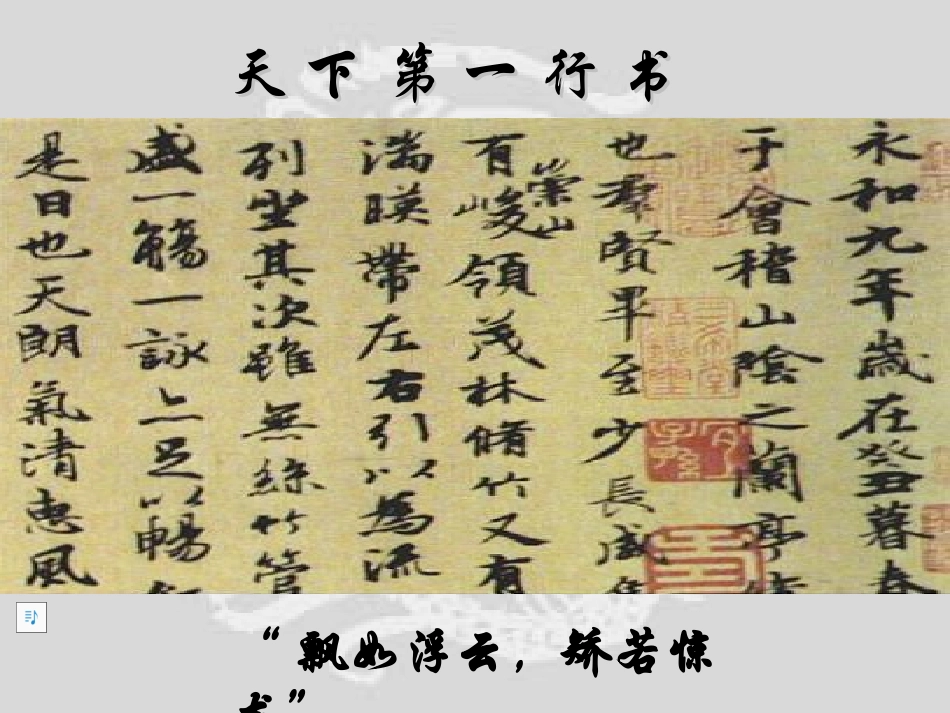 天下第一行书
永和九年歲在癸丑暮春
于會稽山陰之蘭亭
也羣賢畢至少長咸集
有崇山峻領茂林脩竹又有
湍暎帶左右引以為流
列坐其次雖無絲竹管
盛一觴一詠亦足以暢
是日也天朗氣清惠風
“飘如浮云，矫若惊
”